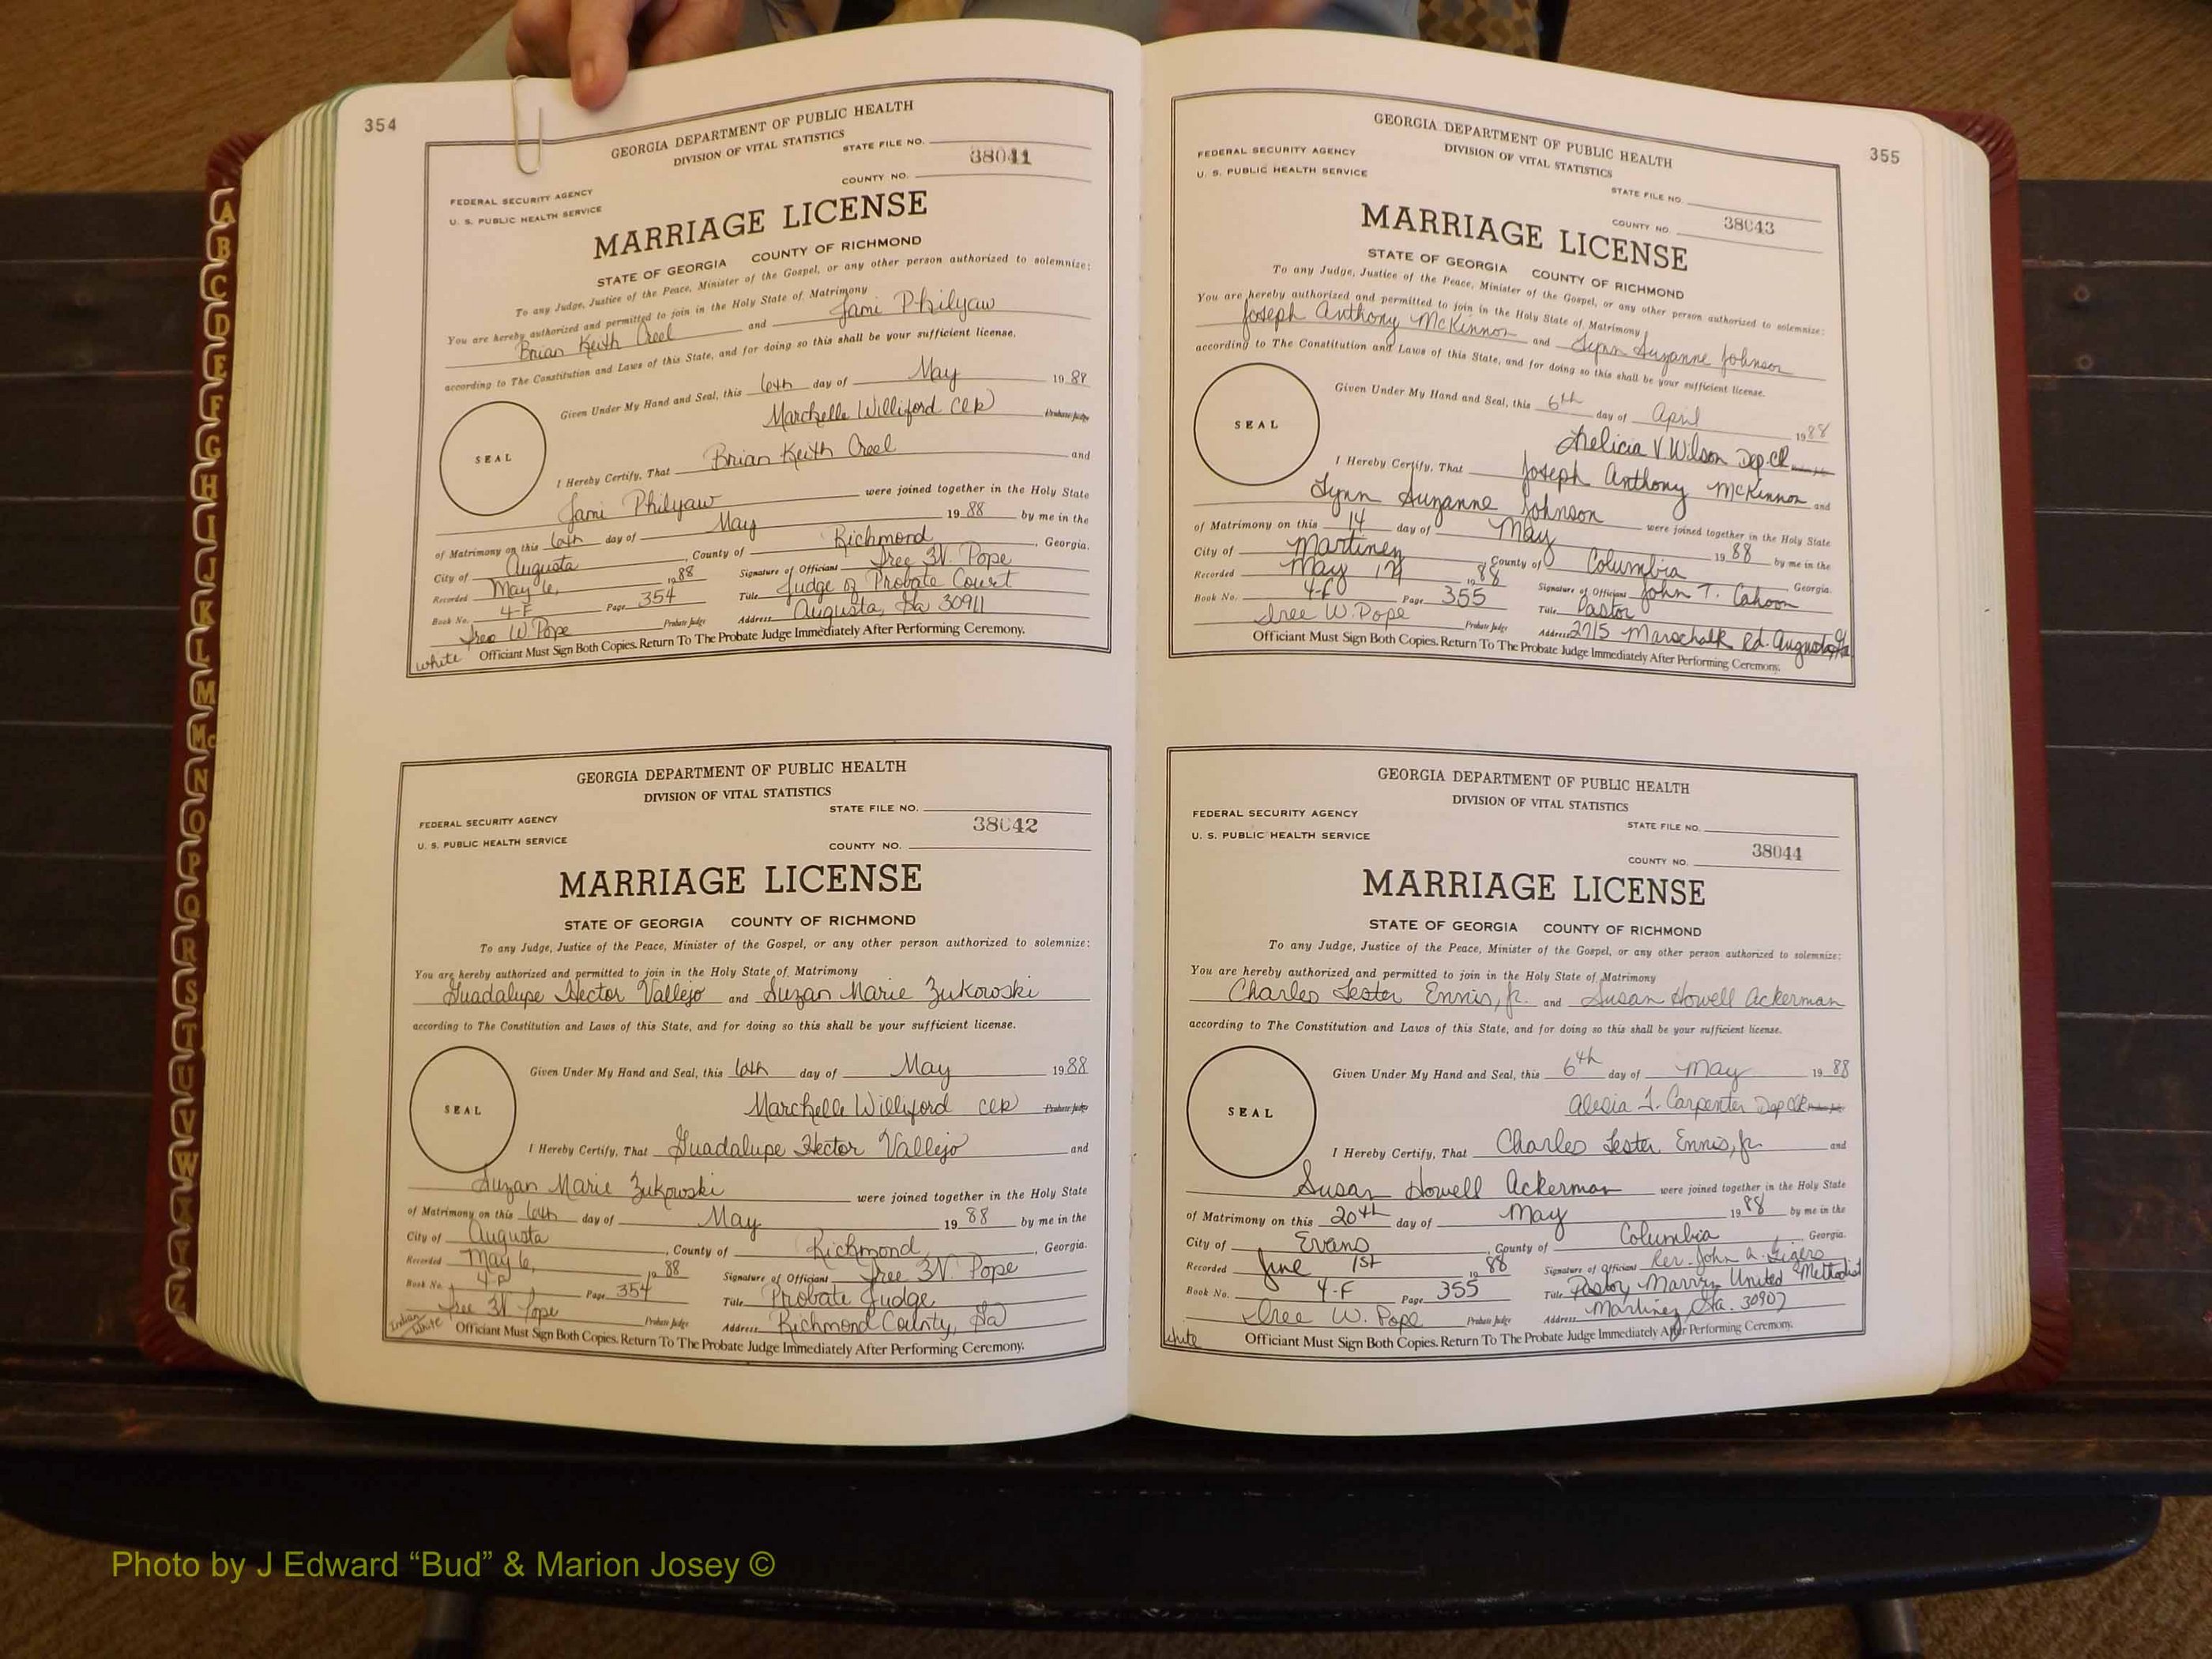 354
GEORGIA DEPARTMENT OF PUBLIC HEALTH
DIVISION OF VITAL STATISTICS
STATE FILE NO.
38041
COUNTY NO.
FEDERAL SECURITY AGENCY
U. S. PUBLIC HEALTH SERVICE
MARRIAGE LICENSE
STATE OF GEORGIA COUNTY OF RICHMOND
To any Judge, Justice of the Peace, Minister of the Gospel, or any other person authorized to solemnize:
You are hereby authorized and permitted to join in the Holy State of Matrimony
Brian Keith Creel and Jami Philyaw
according to The Constitution and Laws of this State, and for doing so this shall be your sufficient license.
Given Under My Hand and Seal, this 6th day of May 1988
Marchelle Williford Clk Probate Judge
SEAL
I Hereby Certify, That Brian Keith Creel and
Jami Philyaw were joined together in the Holy State
of Matrimony on this 6th day of May 1988 by me in the
City of Augusta, County of Richmond, Georgia.
Recorded May 6, 1988 Signature of Officiant W. Pope
Book No. 4-F Page 354 Title Judge of Probate Court
W. Pope Probate Judge Address Augusta, Ga 30911
white Officiant Must Sign Both Copies. Return To The Probate Judge Immediately After Performing Ceremony.
GEORGIA DEPARTMENT OF PUBLIC HEALTH
DIVISION OF VITAL STATISTICS
STATE FILE NO.
38042
FEDERAL SECURITY AGENCY
U. S. PUBLIC HEALTH SERVICE
COUNTY NO.
MARRIAGE LICENSE
STATE OF GEORGIA COUNTY OF RICHMOND
To any Judge, Justice of the Peace, Minister of the Gospel, or any other person authorized to solemnize:
You are hereby authorized and permitted to join in the Holy State of Matrimony
Guadalupe Hector Vallejo and Suzan Marie Zukowski
according to The Constitution and Laws of this State, and for doing so this shall be your sufficient license.
Given Under My Hand and Seal, this 6th day of May 1988
Marchelle Williford Clk Probate Judge
SEAL
I Hereby Certify, That Guadalupe Hector Vallejo and
Suzan Marie Zukowski were joined together in the Holy State
of Matrimony on this 6th day of May 1988 by me in the
City of Augusta, County of Richmond, Georgia.
Recorded May 6, 1988 Signature of Officiant W. Pope
Book No. 4-F Page 354 Title Probate Judge
W. Pope Probate Judge Address Richmond County, Ga
Indian White Officiant Must Sign Both Copies. Return To The Probate Judge Immediately After Performing Ceremony.
355
GEORGIA DEPARTMENT OF PUBLIC HEALTH
DIVISION OF VITAL STATISTICS
FEDERAL SECURITY AGENCY
U. S. PUBLIC HEALTH SERVICE
STATE FILE NO.
COUNTY NO. 38043
MARRIAGE LICENSE
STATE OF GEORGIA COUNTY OF RICHMOND
To any Judge, Justice of the Peace, Minister of the Gospel, or any other person authorized to solemnize:
You are hereby authorized and permitted to join in the Holy State of Matrimony
Joseph Anthony McKinnon and Lynn Suzanne Johnson
according to The Constitution and Laws of this State, and for doing so this shall be your sufficient license.
Given Under My Hand and Seal, this 6th day of April 1988
V Wilson Dep. Cl.
SEAL
I Hereby Certify, That Joseph Anthony McKinnon and
Lynn Suzanne Johnson were joined together in the Holy State
of Matrimony on this 14 day of May 1988 by me in the
City of Martinez County of Columbia Georgia.
Recorded May 1988 Signature of Officiant John T. Cahoon
Book No. 4-F Page 355 Title Pastor
W. Pope Probate Judge Address 2715 Marschalk Rd. Augusta, Ga
Officiant Must Sign Both Copies. Return To The Probate Judge Immediately After Performing Ceremony.
GEORGIA DEPARTMENT OF PUBLIC HEALTH
DIVISION OF VITAL STATISTICS
FEDERAL SECURITY AGENCY
U. S. PUBLIC HEALTH SERVICE
STATE FILE NO.
COUNTY NO. 38044
MARRIAGE LICENSE
STATE OF GEORGIA COUNTY OF RICHMOND
To any Judge, Justice of the Peace, Minister of the Gospel, or any other person authorized to solemnize:
You are hereby authorized and permitted to join in the Holy State of Matrimony
Charles Lester Ennis, Jr. and Susan Howell Ackerman
according to The Constitution and Laws of this State, and for doing so this shall be your sufficient license.
Given Under My Hand and Seal, this 6th day of May 1988
Alesia J. Carpenter Dep Clk
SEAL
I Hereby Certify, That Charles Lester Ennis, Jr. and
Susan Howell Ackerman were joined together in the Holy State
of Matrimony on this 20th day of May 1988 by me in the
City of Evans, County of Columbia Georgia.
Recorded June 1st 1988 Signature of Officiant Rev. John A.
Book No. 4-F Page 355 Title Pastor, United Methodist
W. Pope Probate Judge Address Martinez, Ga. 30907
white Officiant Must Sign Both Copies. Return To The Probate Judge Immediately After Performing Ceremony.
A
B
C
D
E
F
G
H
I
J
K
L
M
Mc
N
O
P
Q
R
S
T
U
V
W
X
Y
Z
Photo by J Edward “Bud” & Marion Josey ©